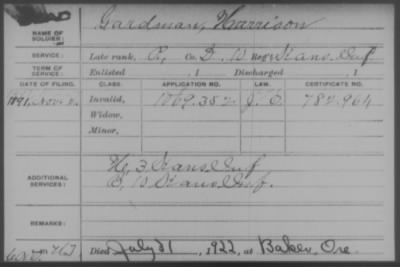 NAME OF SOLDIER: Gardman, Harrison
SERVICE: Late rank, Co. D, 10 Reg't Kans. Inf.
TERM OF SERVICE: Enlisted , 1 Discharged , 1
DATE OF FILING. CLASS. APPLICATION NO. LAW. CERTIFICATE NO.
1891, Nov. Invalid, 1069.352 782.964
Widow,
Minor,
ADDITIONAL SERVICES: 3 Kans. Inf.
10 Kans. Inf.
REMARKS:
Died July 21, 1922, at Baker, Ore.